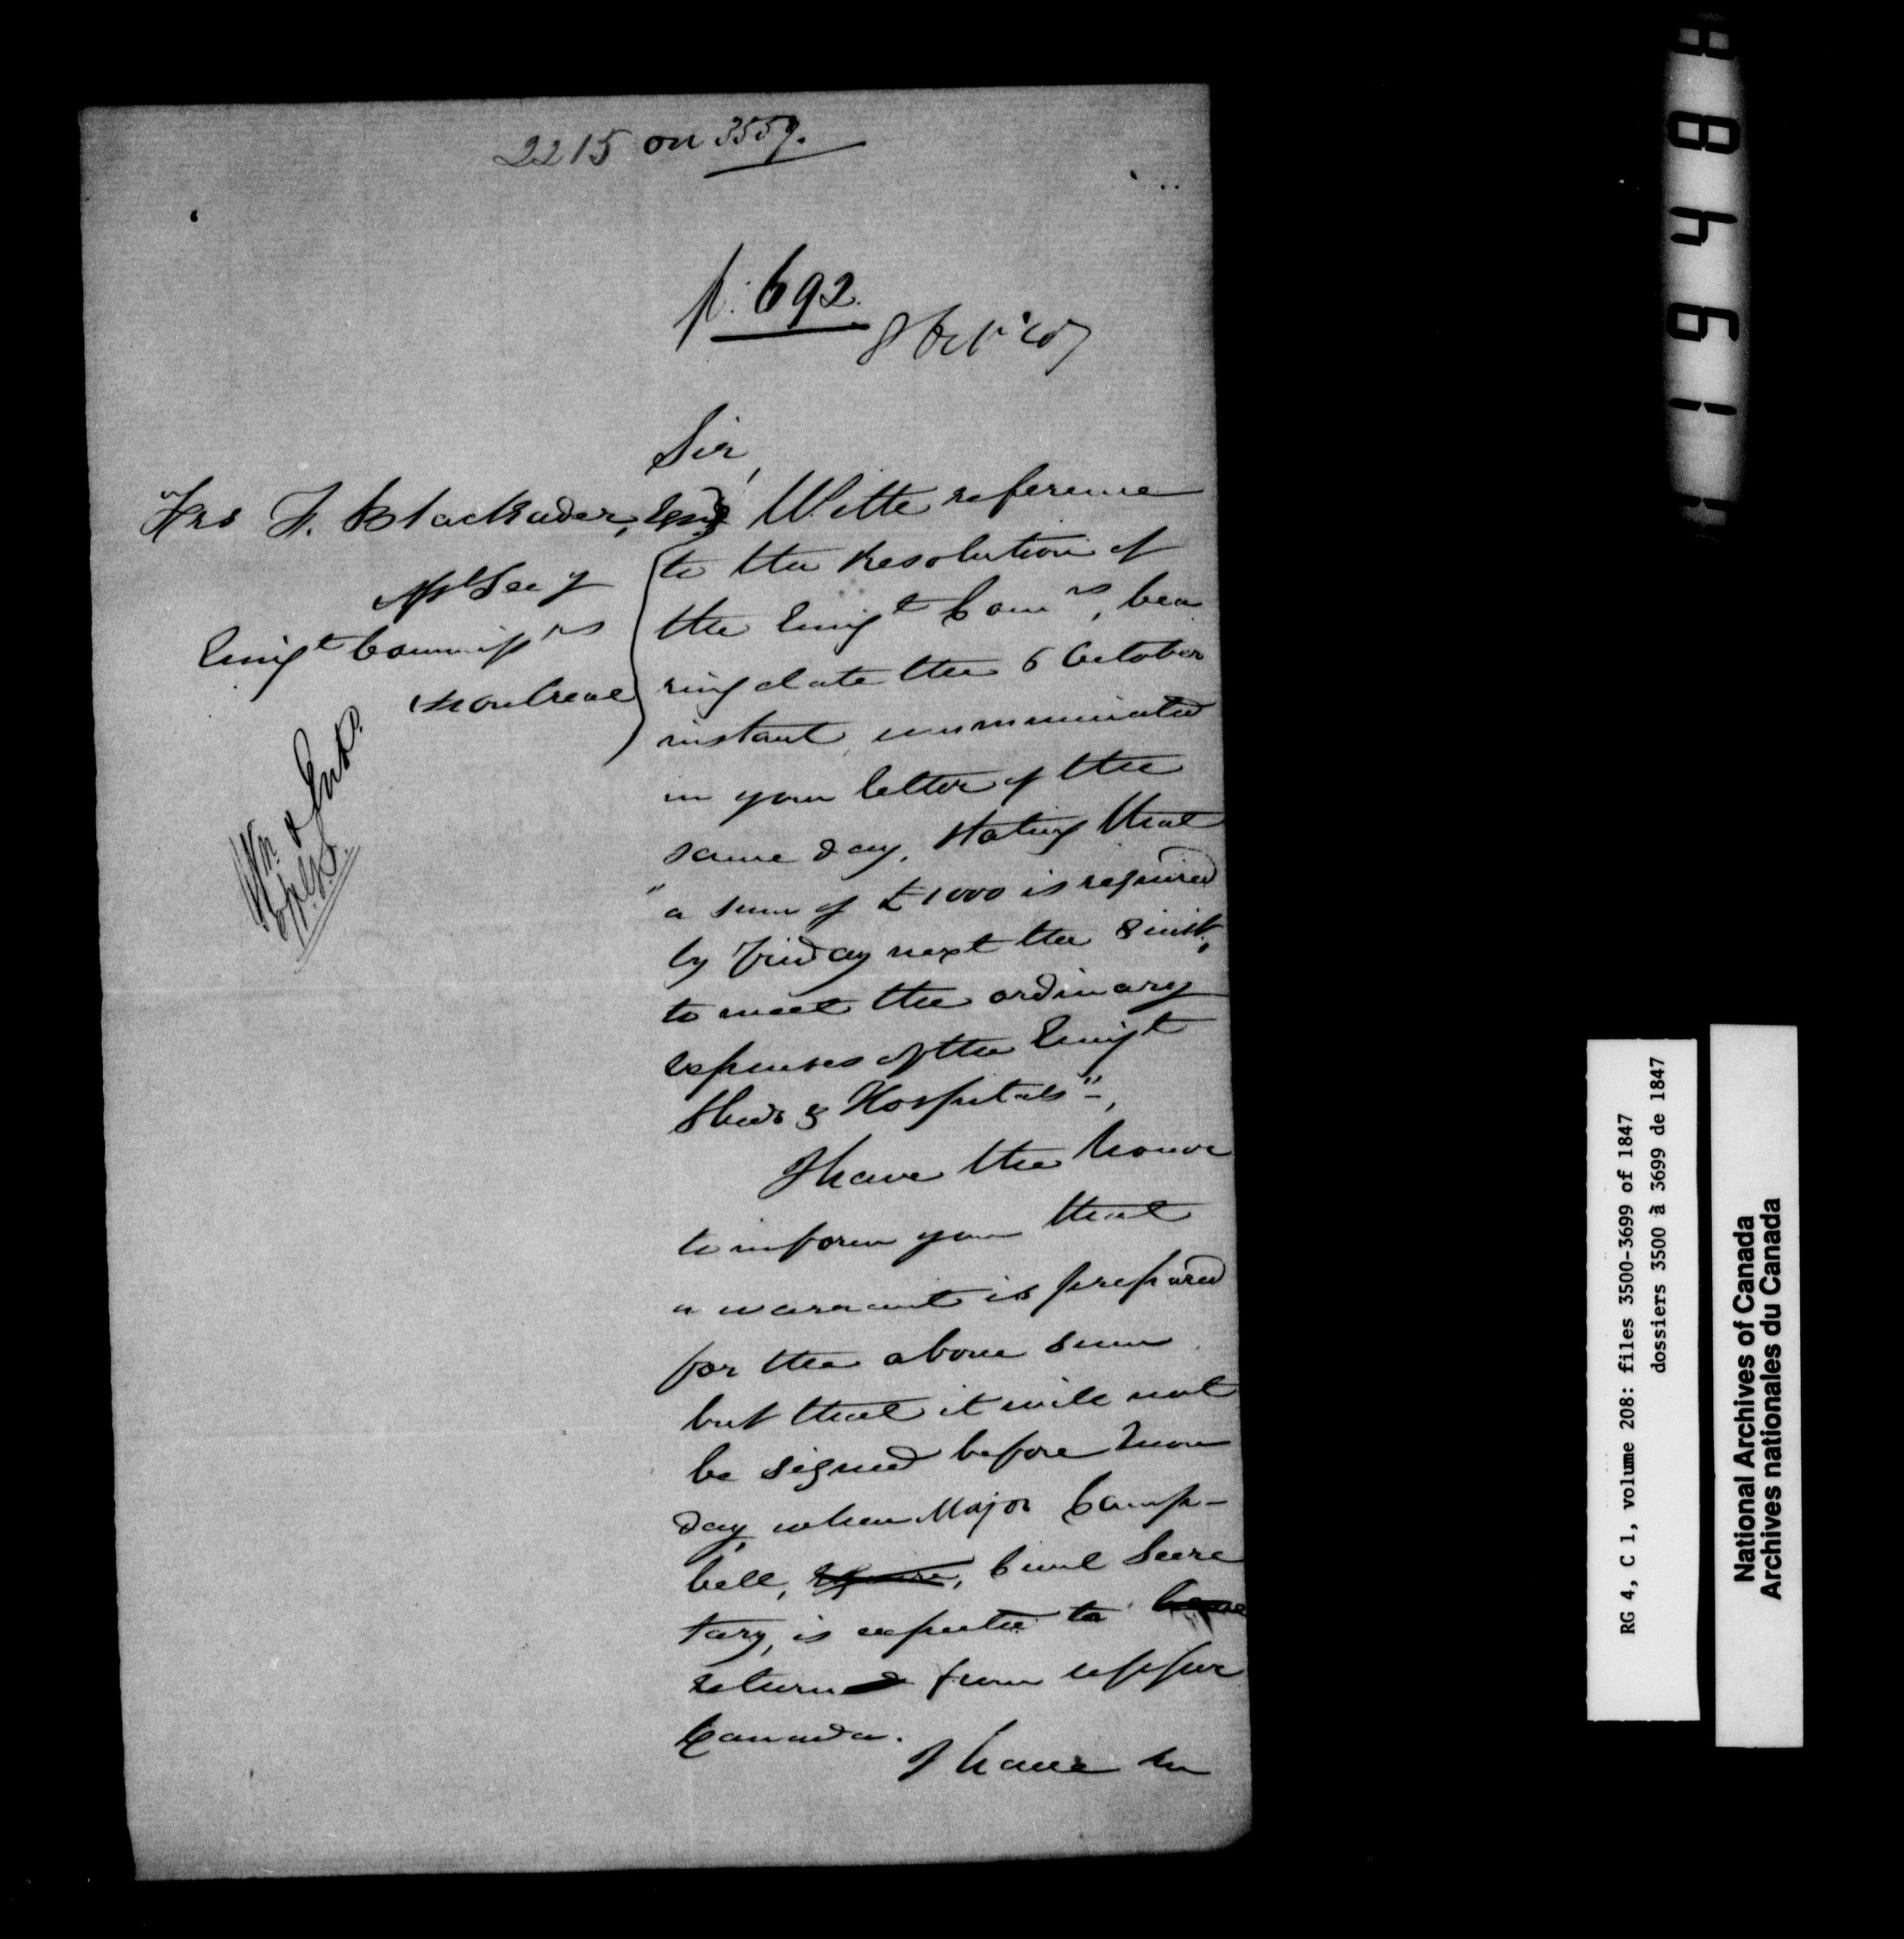 2215 on 3559.
p. 692.
8 Oct. 47
Sir,
Frs F. Blackader, Esqr
Ast Secy
Emigt Commissrs
Montreal
With reference
to the Resolution of
the Emigt Comrs, bea
ring date the 6 October
instant, communicated
in your letter of the
same day, stating that
"a sum of £1000 is required
by Friday next the 8 inst.,
to meet the ordinary
expenses of the Emigt
Sheds & Hospitals",
I have the honor
to inform you that
a warrant is prepared
for the above sum
but that it will not
be signed before Mon
day, when Major Camp-
bell, Civil Secre
tary, is expected to
return from Upper
Canada.
I have
Wn. & Entd.
84916
RG 4, C 1, volume 208: files 3500-3699 of 1847
dossiers 3500 à 3699 de 1847
National Archives of Canada
Archives nationales du Canada